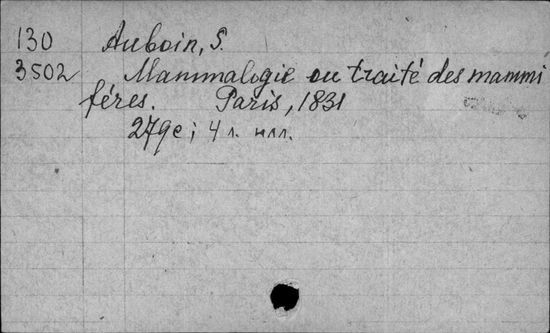 130 Auboin, S.
3502 Mammalogie ou traité des mammi
féres. Paris, 1831
279c; 4 л. илл.